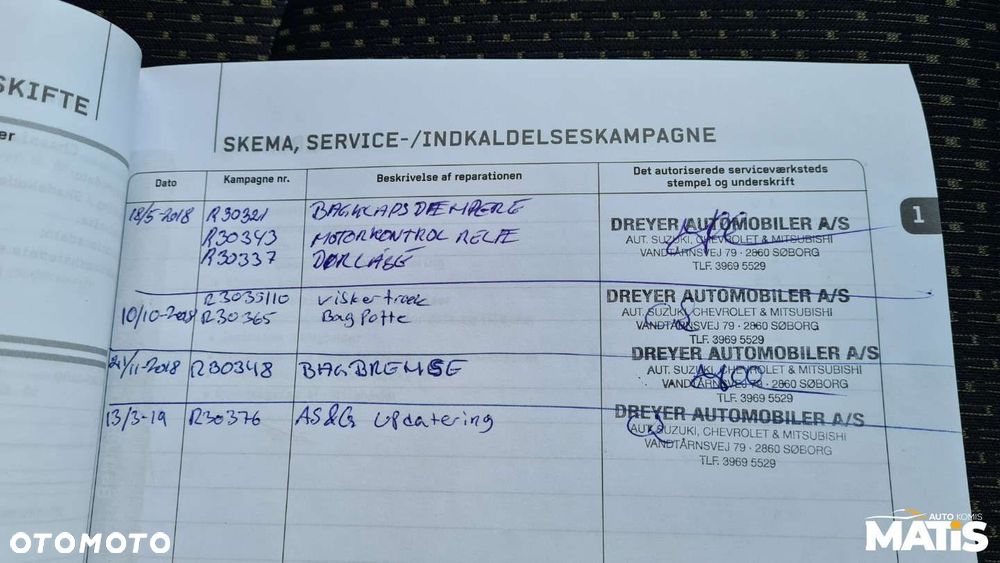 SKIFTE
er
SKEMA, SERVICE-/INDKALDELSESKAMPAGNE
Dato
Kampagne nr.
Beskrivelse af reparationen
Det autoriserede serviceværksteds
stempel og underskrift
1
18/5-2018 R30321 BAGKLAPSDÆMPERE
R30343 MOTORKONTROL RELÆ
R30337 DØRLÅSE
DREYER AUTOMOBILER A/S
AUT. SUZUKI, CHEVROLET & MITSUBISHI
VANDTÅRNSVEJ 79 · 2860 SØBORG
TLF. 3969 5529
viskertræk
10/10-2018 R30365 Bagpotte
DREYER AUTOMOBILER A/S
AUT. SUZUKI, CHEVROLET & MITSUBISHI
VANDTÅRNSVEJ 79 · 2860 SØBORG
TLF. 3969 5529
21/11-2018 R30348 BAGBREMSE
DREYER AUTOMOBILER A/S
AUT. SUZUKI, CHEVROLET & MITSUBISHI
VANDTÅRNSVEJ 79 · 2860 SØBORG
TLF. 3969 5529
13/3-19 R30376 AS&G updatering
DREYER AUTOMOBILER A/S
AUT. SUZUKI, CHEVROLET & MITSUBISHI
VANDTÅRNSVEJ 79 · 2860 SØBORG
TLF. 3969 5529
OTOMOTO
AUTO KOMIS
MATIS